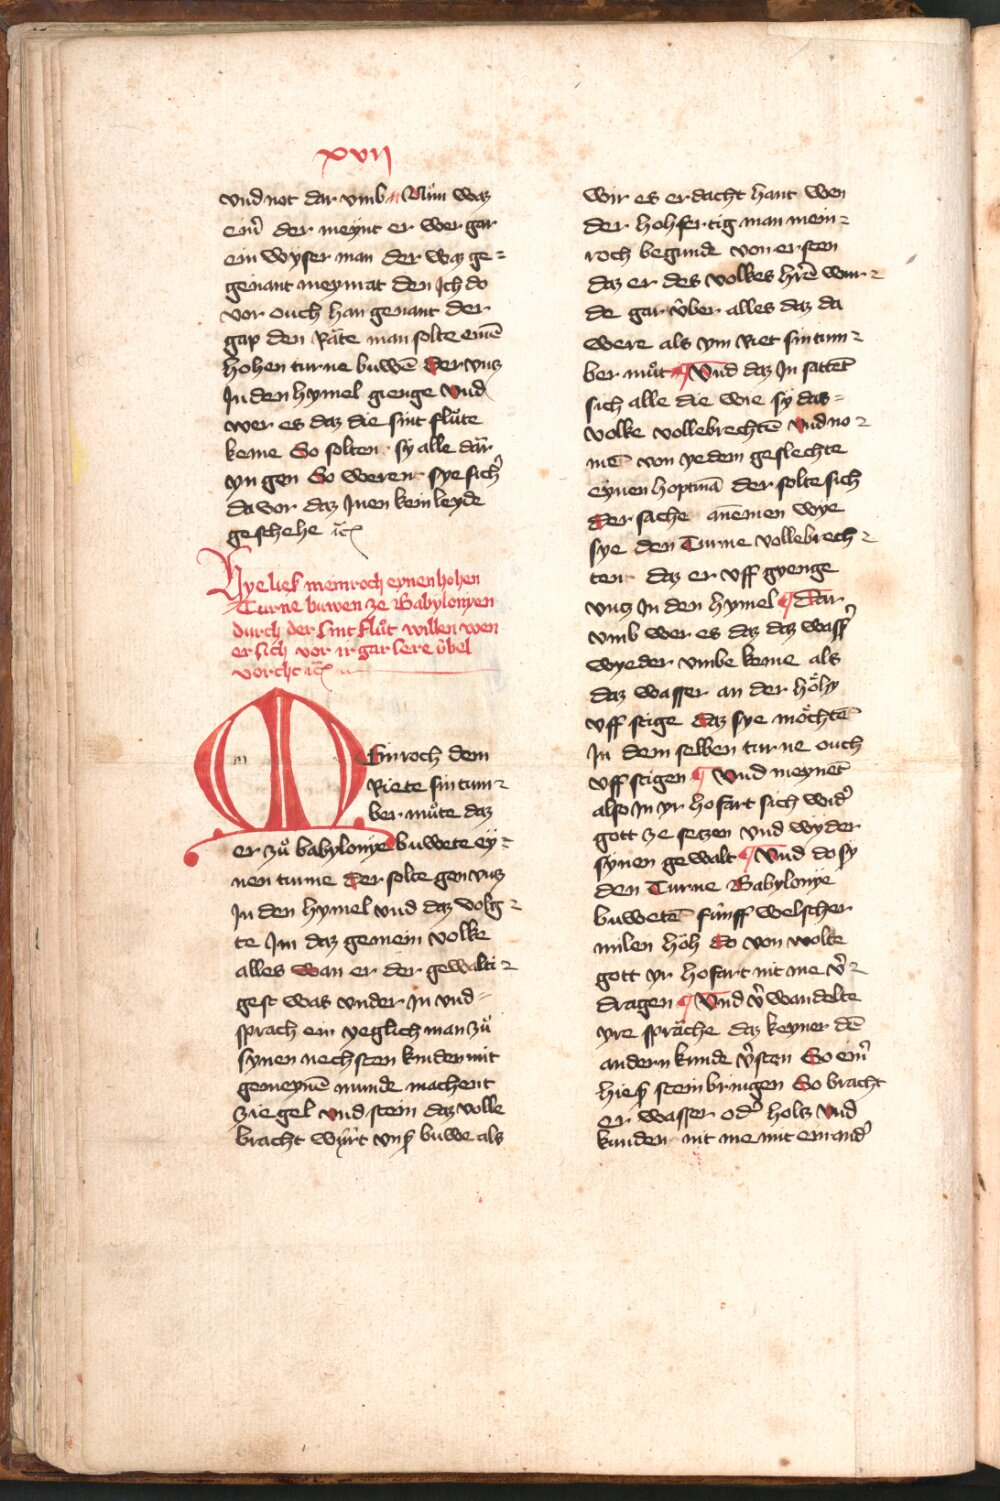 xvij
vnd not dar vmb Nün waz
ein̉ der meynt er wer gar
ein wyser man der waz ge=
genant meymat den Ich do
vor ouch han genant der
gap den Räte man solte einē
hohen turne buwē der vntz
In den hymel gienge vnd
wer es daz die sint flůte
keme So solten sy alle dar
yn gen So weren sye sich̉
da vor daz Inen kein leyde
geschehe ⁊c̄
Hye lies memroch eynen hohen
Turne buwen ze Babylonyen
durch der sint flůt willen wen
er sich vor ir gar sere übel
vorcht ⁊c̄
MEinroch dem
Riete sin tum=
ber můte daz
er zů babylonye buwete ey=
nen turne der solte gen vntz
In den hymel vnd daz volg=
te Im daz gemein volke
alles wan er der gewalti=
gest was vnder In vnd=
sprach ein yeglich man zů
synen nechsten kinden mit
gemeynē munde machent
ziegel vnd stein daz volle
bracht wÿrt vnß buwe als
wir es erdacht hant wen
der hohfertig man mein=
roch begunde von ersten
daz er des volkes hr̄e wur=
de gar über alles daz da
were als ym Riet sin tum=
ber můt ¶ Vnd daz In sattēt
sich alle die wie sy das=
volke vollebrechtē vnd no=
mē von yedem geslechte
eynen hoptmā der solte sich
der sache anēmen wye
sye den Turne vollebrech=
ten daz er vff gyenge
vntz In den hymel ¶ Dar
vmb wer es daz daz wass̉
wyeder vmbe keme als
daz wasser an der höhy
vff stige daz sye möchtē
In dem selben turne ouch
vff stigen ¶ Vnd meynēt
also In yr hofart sich wid̉
gott ze setzen vnd wyder
synen gewalt ¶ Vnd do sy
den Turne Babylonye
buwetē fünff welscher
milen höh do von wolte
gott yr hofart nit me v̉=
dragen ¶ Vnd v̉wandelte
yre spräche daz keyner dē
andern kunde v̉sten So ein̉
hieß stein bringen So bracht
er wasser od̉ holtz vnd
kunden nit me mit einand̉